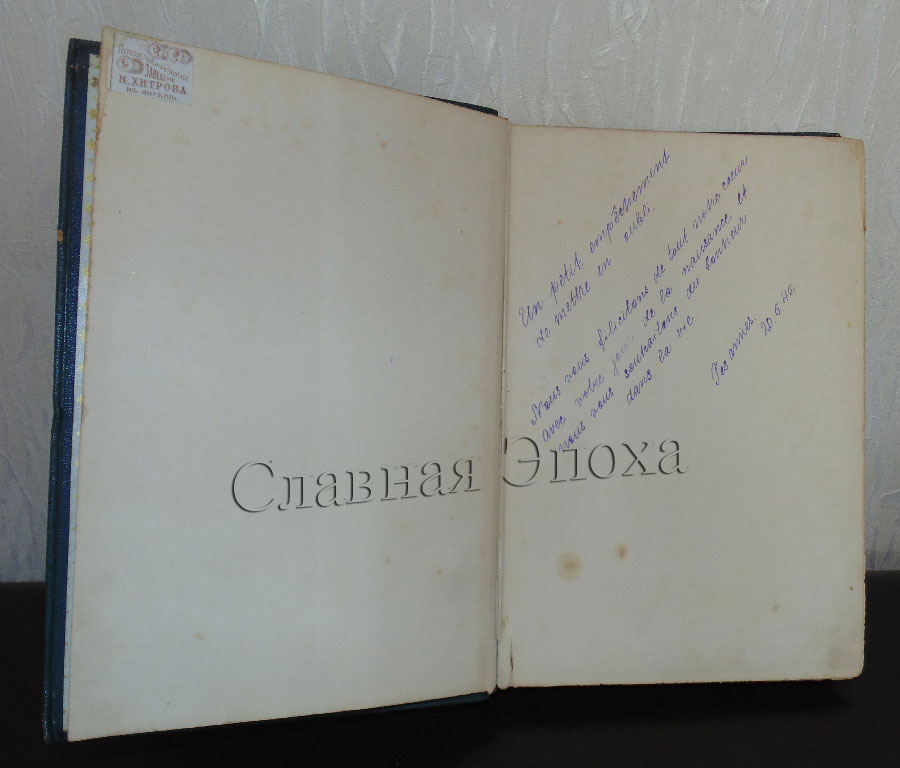 Переплетное
ЗАВЕДЕНІЕ
Н. ХИТРОВА
ВЪ МОСКВѢ.
Un petit empêchement
de mettre en oubli.
Nous vous félicitons de tout notre coeur
avec votre jour de la naissance et
nous vous souhaitons du bonheur
dans la vie.
Tes amies.
20.5.45.
Славная Эпоха